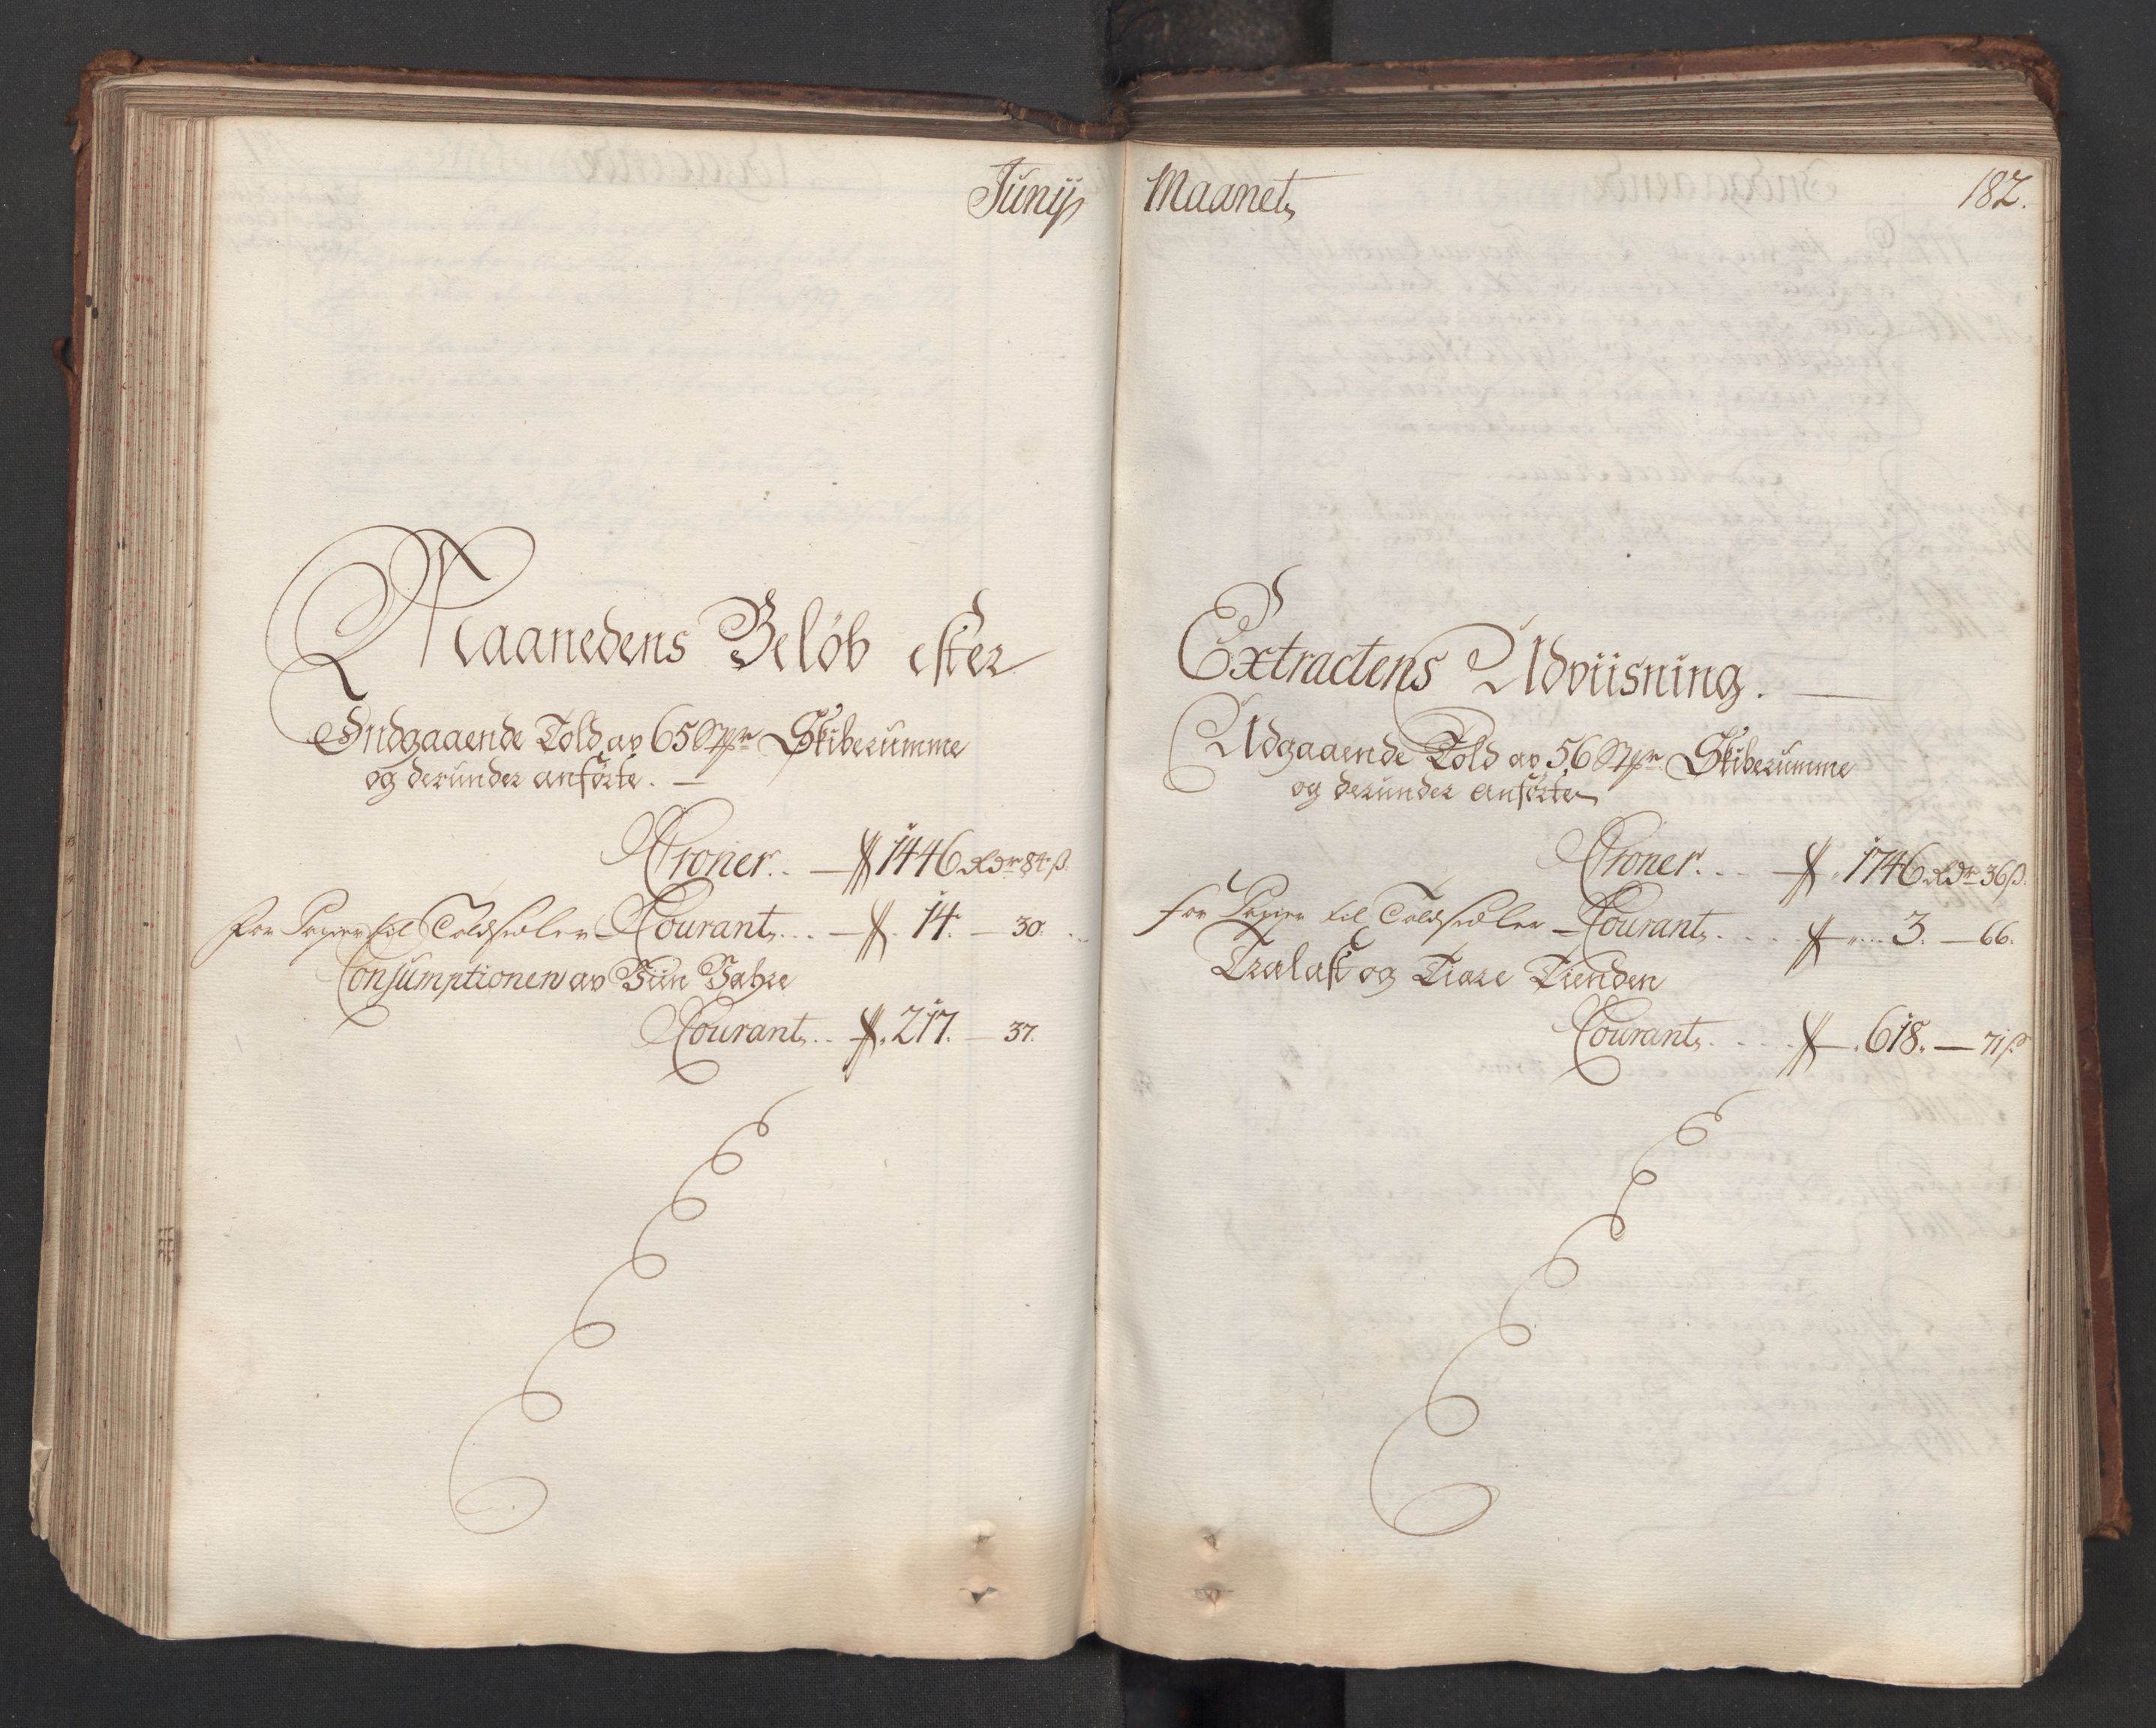 Junij
Maanetz
182.
Maanedens Beløb efter
Indgaaende Told av 65 Stkr Skiberumme
og derunder anførte. —
Croner. . — 1446 Rdr 84 ß.
for Papier til Toldsedler Courant . . . — 14. — 30.
Consumptionen av Viin Vahre
Courant . . 217. — 37.
Extractens Udviisning. —
Udgaaende Told av 56 Stkr Skiberumme
og derunder anførte
Croner. . . — 1746 Rdr 36 ß.
for Papier til Toldsedler — Courant . . . . 3. — 66.
Trælast og Tiære Tienden
Courant . . . . 618. — 71 ß